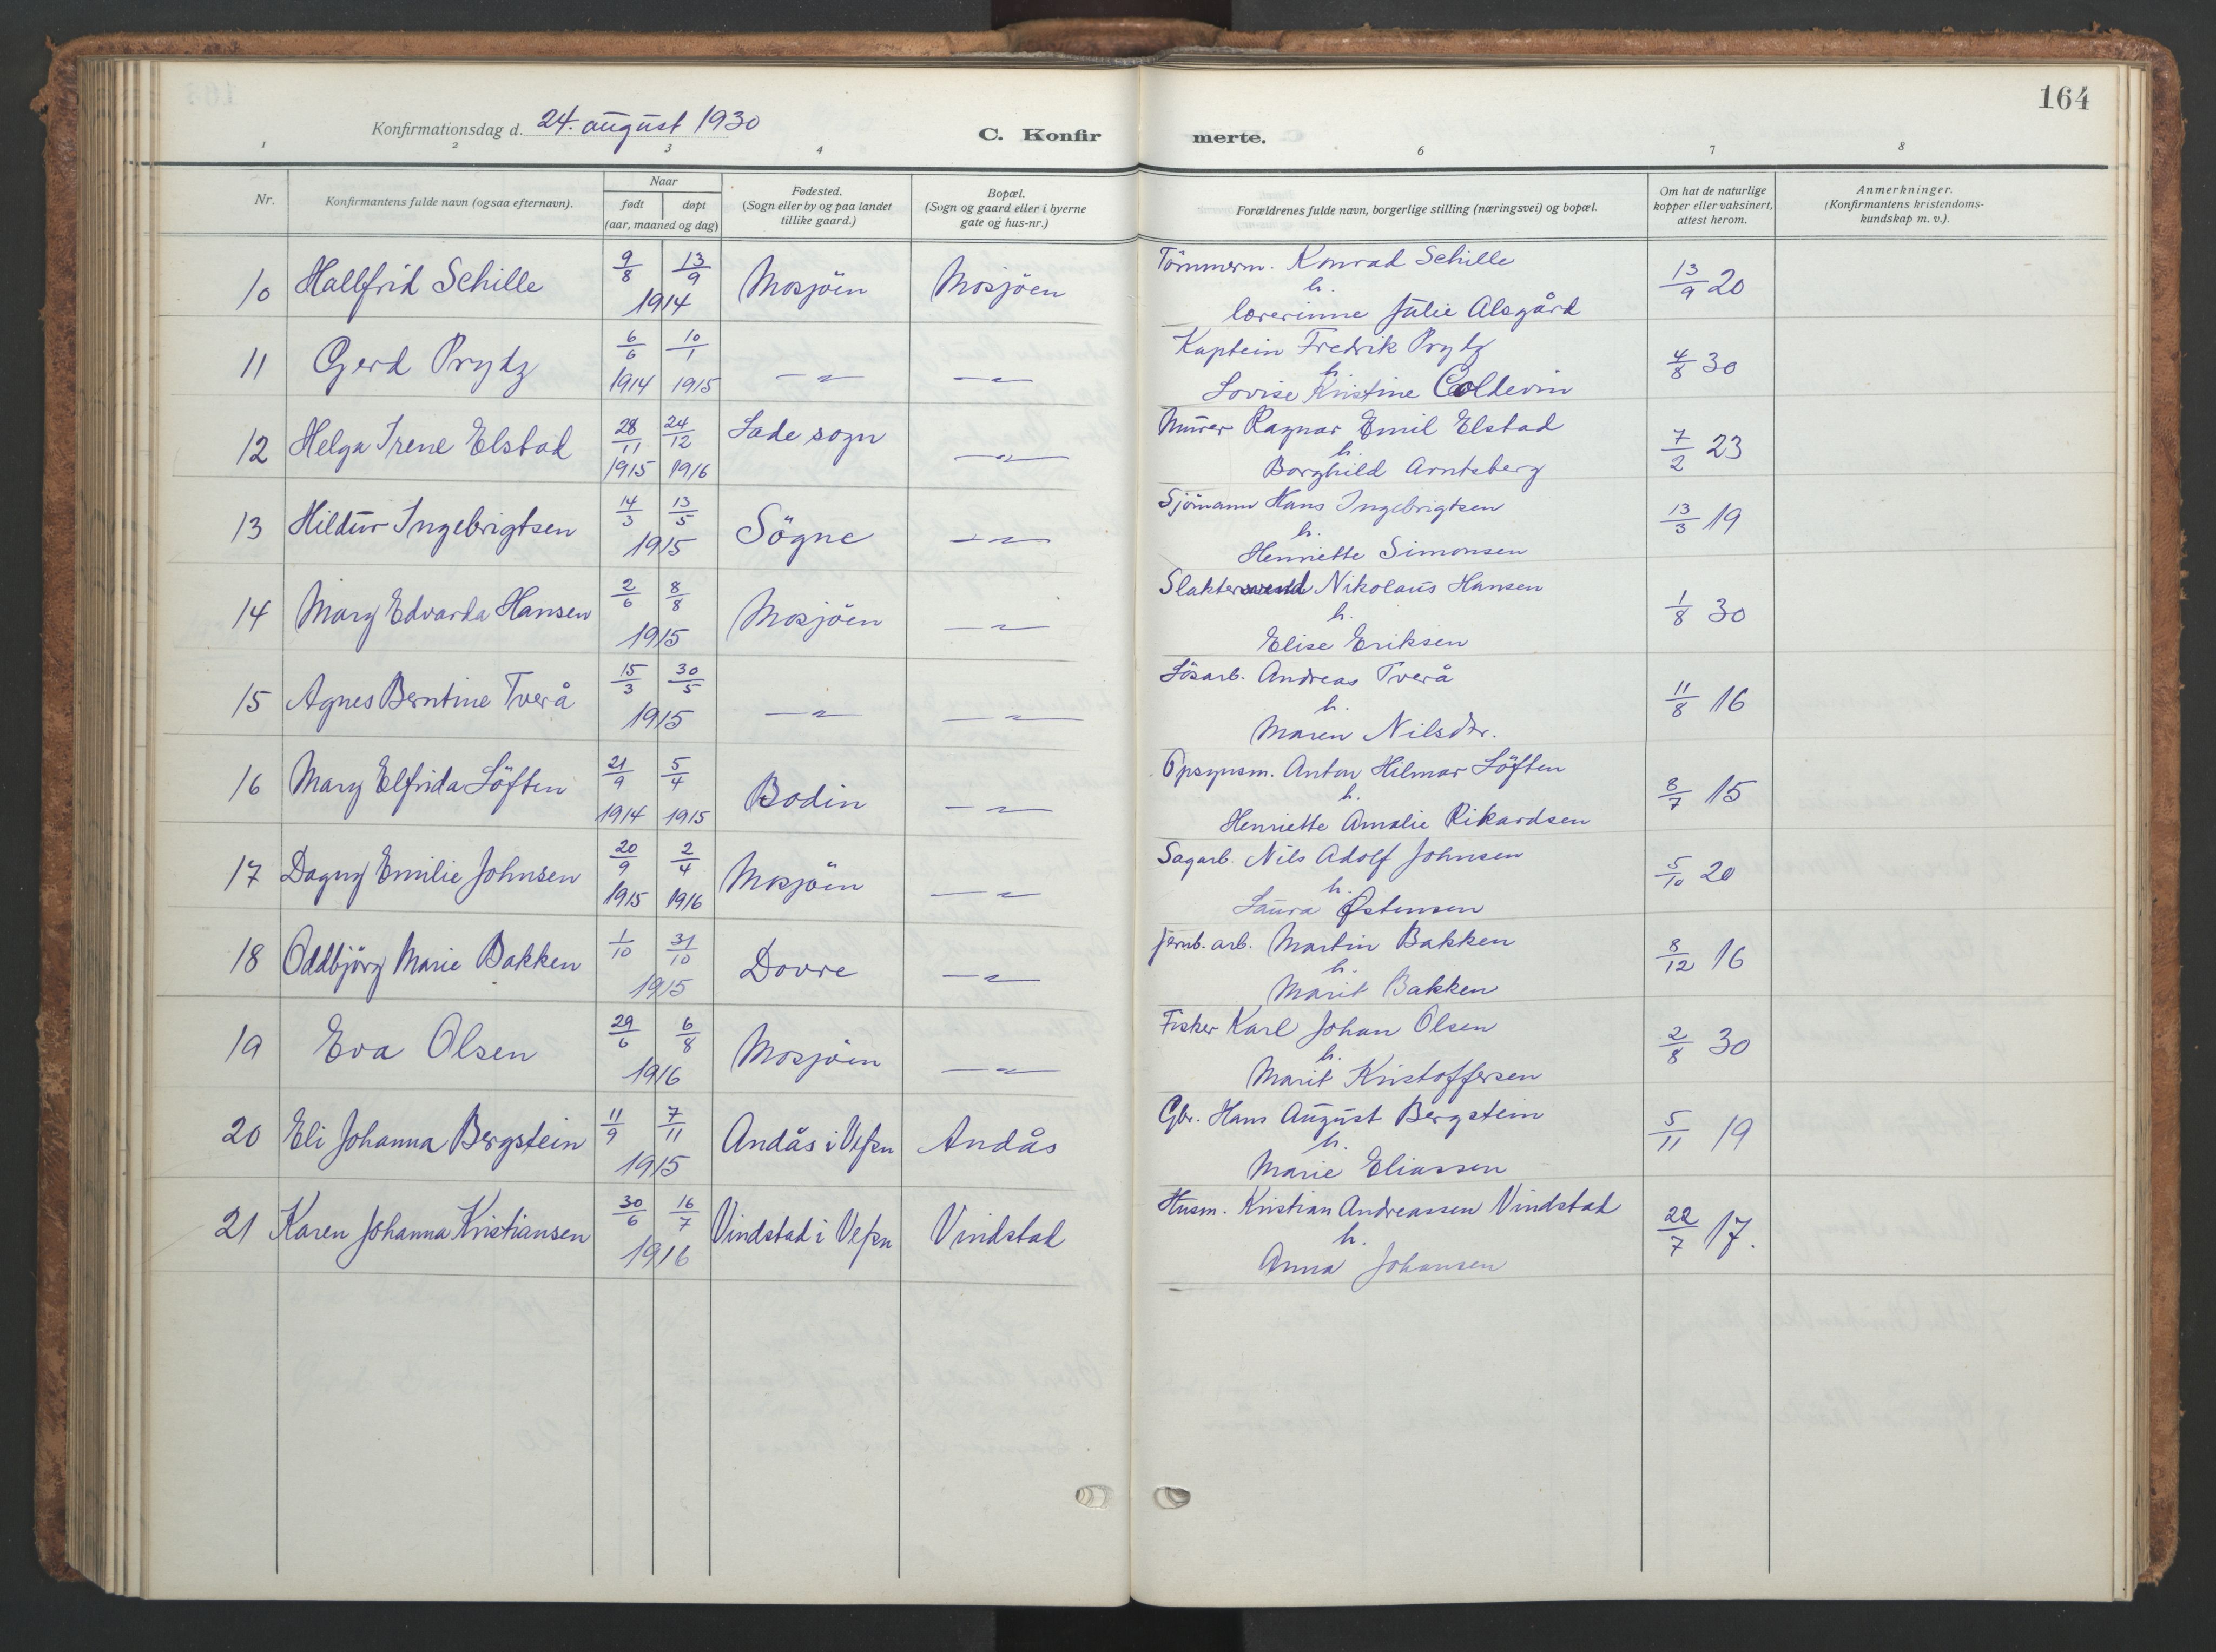 164
Konfirmationsdag d. 24. august 1930
C. Konfirmerte.
1 2 3 4 6 7 8
Nr.
Konfirmantens fulde navn (ogsaa efternavn).
Naar
født døpt
(aar, maaned og dag)
Fødested.
(Sogn eller by og paa landet
tillike gaard.)
Bopæl.
(Sogn og gaard eller i byerne
gate og hus-nr.)
Forældrenes fulde navn, borgerlige stilling (næringsvei) og bopæl.
Om hat de naturlige
kopper eller vaksinert,
attest herom.
Anmerkninger.
(Konfirmantens kristendoms-
kundskap m. v.).
10 Hallfrid Schille 9/8 13/9 1914 Mosjöen Mosjöen Tömmerm. Konrad Schille 13/9 20
h.
lærerinne Julie Alsgård
11 Gerd Prydz 6/6 1914 10/1 1915 —"— —"— Kaptein Fredrik Prytz 4/8 30
h.
Lovise Kristine Coldevin
12 Helga Irene Elstad 28/11 1915 24/12 1916 Lade sogn —"— Murer Ragnar Emil Elstad 7/2 23
h.
Borghild Arntsberg
13 Hildur Ingebrigtsen 14/3 13/5 1915 Sögne —"— Sjömann Hans Ingebrigtsen 13/3 19
h.
Henriette Simonsen
14 Mary Edvarda Hansen 2/6 8/8 1915 Mosjöen —"— Slaktersvend Nikolaus Hansen 1/8 30
h.
Elise Eriksen
15 Agnes Berntine Tverå 15/3 30/5 1915 —"— —"— Lösarb. Andreas Tverå 11/8 16
h.
Maren Nilsdtr.
16 Mary Elfrida Löften 21/9 1914 5/4 1915 Bodin —"— Opsynsm. Anton Hilmar Löften 8/7 15
h.
Henriette Amalie Rikardsen
17 Dagny Emilie Johnsen 20/9 1915 2/4 1916 Mosjöen —"— Sagarb. Nils Adolf Johnsen 5/10 20
h.
Laura Østensen
18 Oddbjörg Marie Bakken 1/10 31/10 1915 Dovre —"— Jernb. arb. Martin Bakken 8/12 16
h.
Marit Bakken
19 Eva Olsen 29/6 6/8 1916 Mosjöen —"— Fisker Karl Johan Olsen 2/8 30
h.
Marit Kristoffersen
20 Eli Johanna Bergstein 11/9 7/11 1915 Andås i Vefsn Andås Gbr. Hans August Bergstein 5/11 19
h.
Marie Eliassen
21 Karen Johanna Kristiansen 30/6 16/7 1916 Vindstad i Vefsn Vindstad Husm. Kristian Andreassen Vindstad 22/7 17.
h.
Anna Johansen